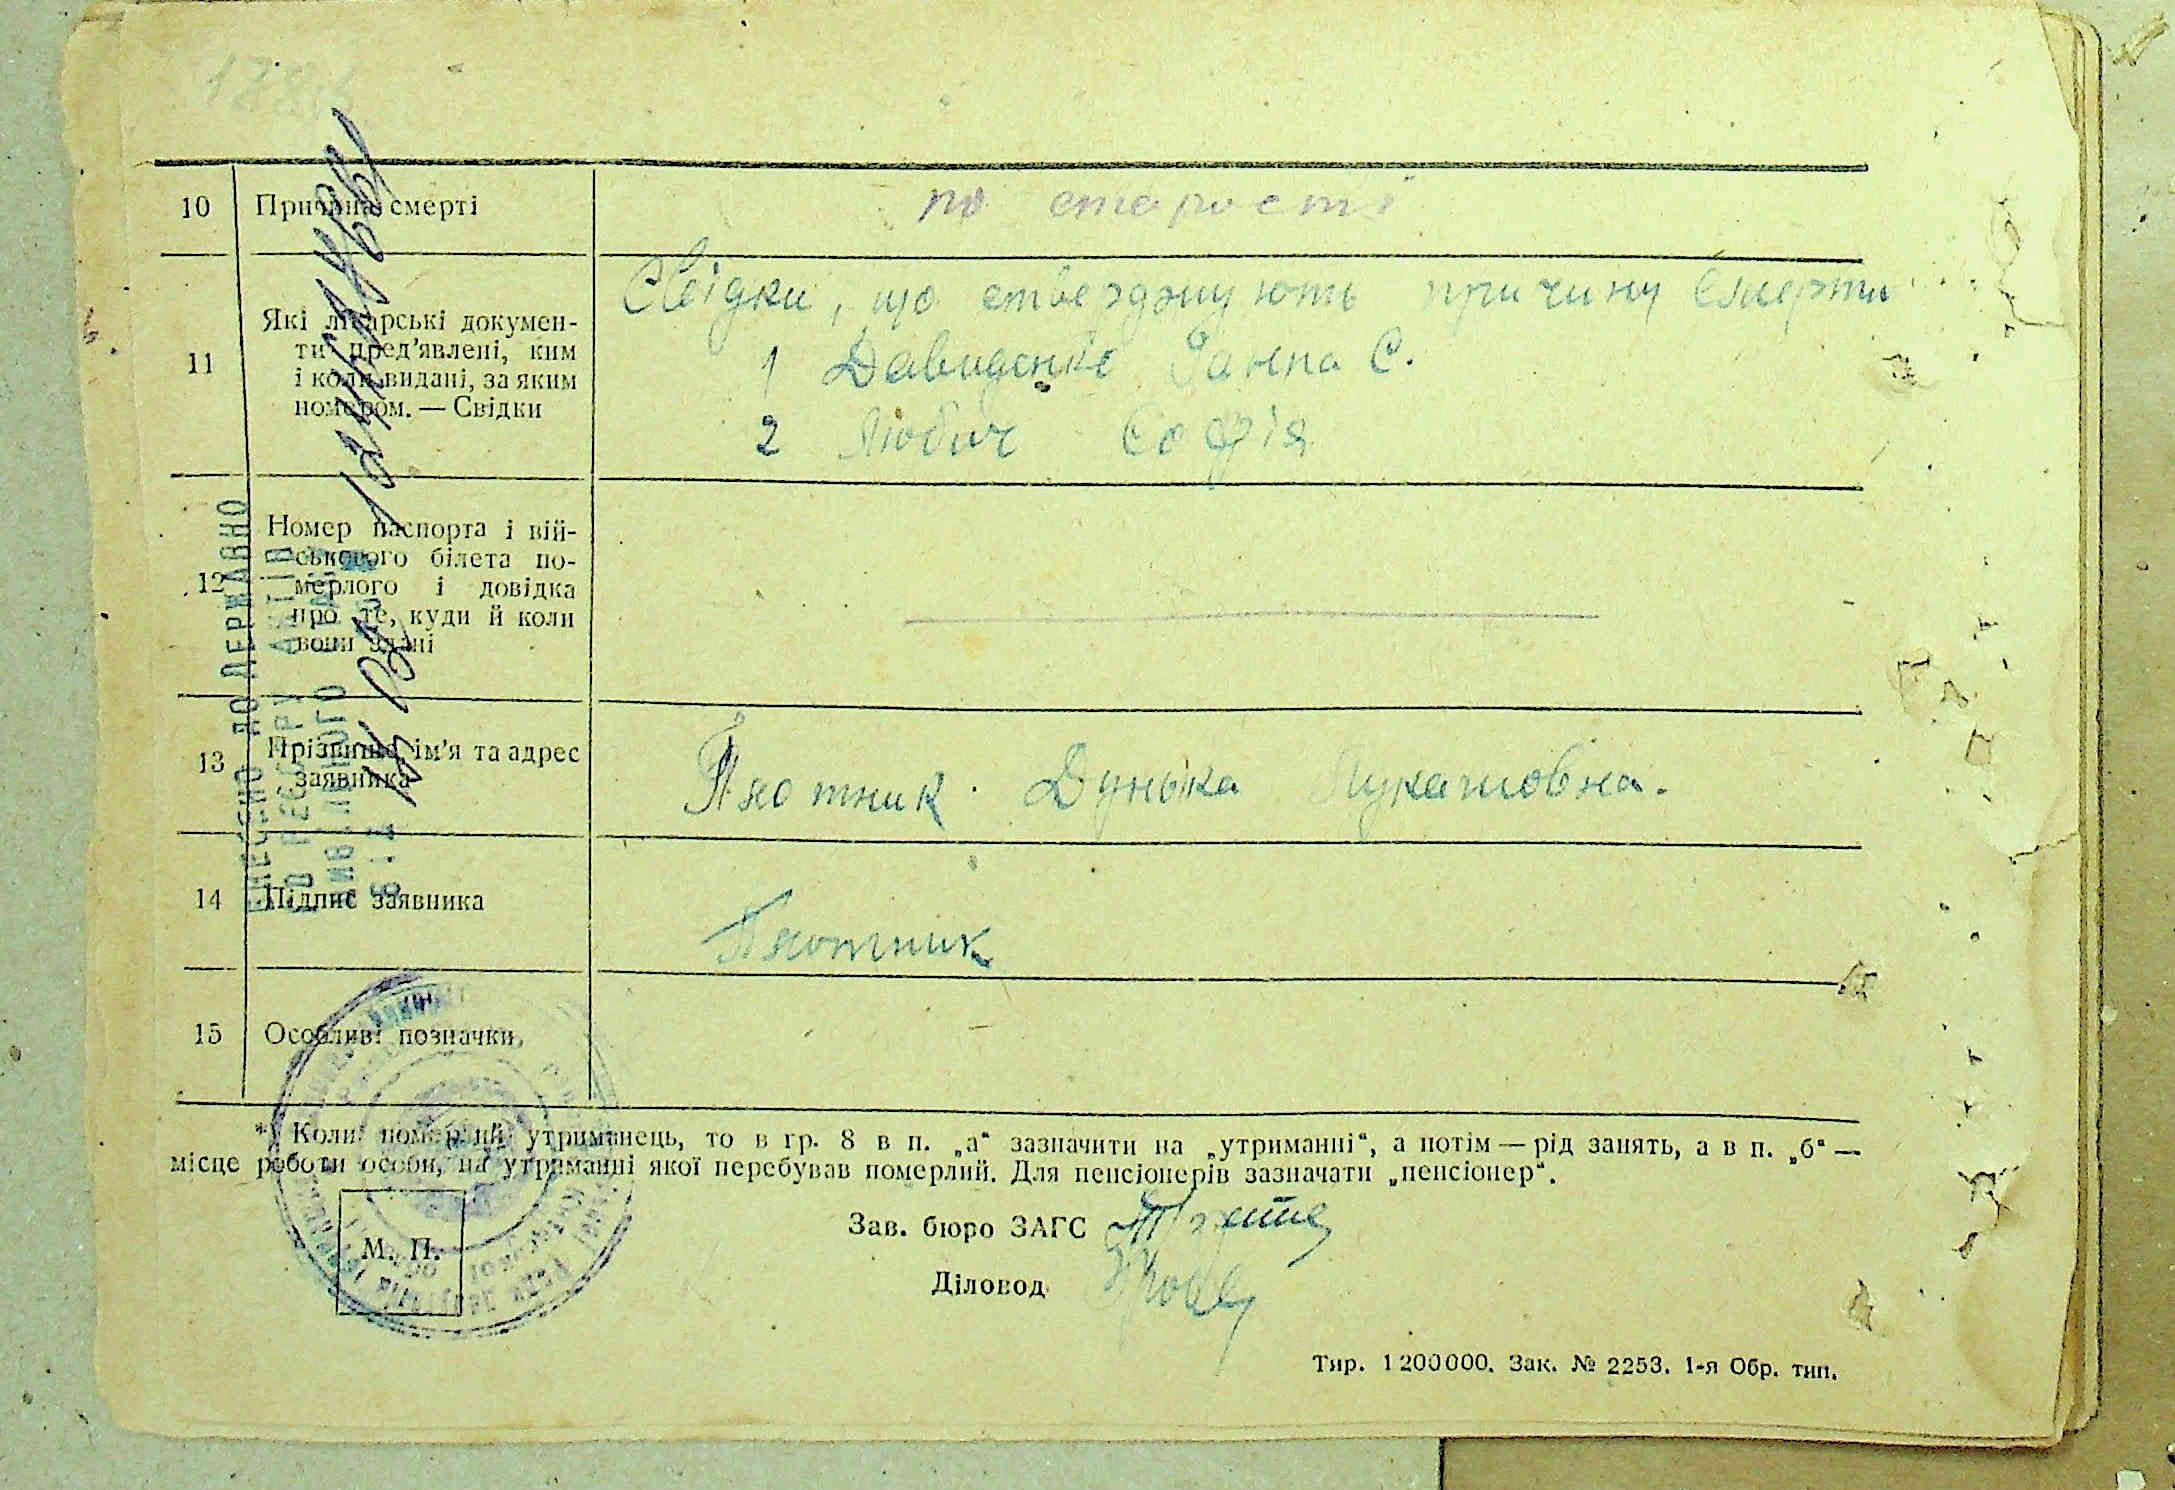 10 Причина смерті по старості
11 Які лікарські докумен-
ти пред'явлені, ким
і коли видані, за яким
номером. — Свідки
Свідки, що стверджують причину смерти
1 Давиденко Ганна С.
2 Любич Софія
12 Номер паспорта і вій-
ськового білета по-
мерлого і довідка
про те, куди й коли
вони здані
13 Прізвище, ім'я та адрес
заявника
Плотник Дунька Лукашовна.
14 Підпис заявника
Плотник
15 Особливі позначки
*) Коли померлий утриманець, то в гр. 8 в п. „а“ зазначити на „утриманні“, а потім — рід занять, а в п. „б“ —
місце роботи особи, на утриманні якої перебував померлий. Для пенсіонерів зазначати „пенсіонер“.
Зав. бюро ЗАГС
М. П.
Діловод
Тир. 1 200 000. Зак. № 2253. 1-я Обр. тип.
ВНЕСЕНО ДО ДЕРЖАВНО
ГО РЕЄСТРУ АКТІВ
ЦИВІЛЬНОГО